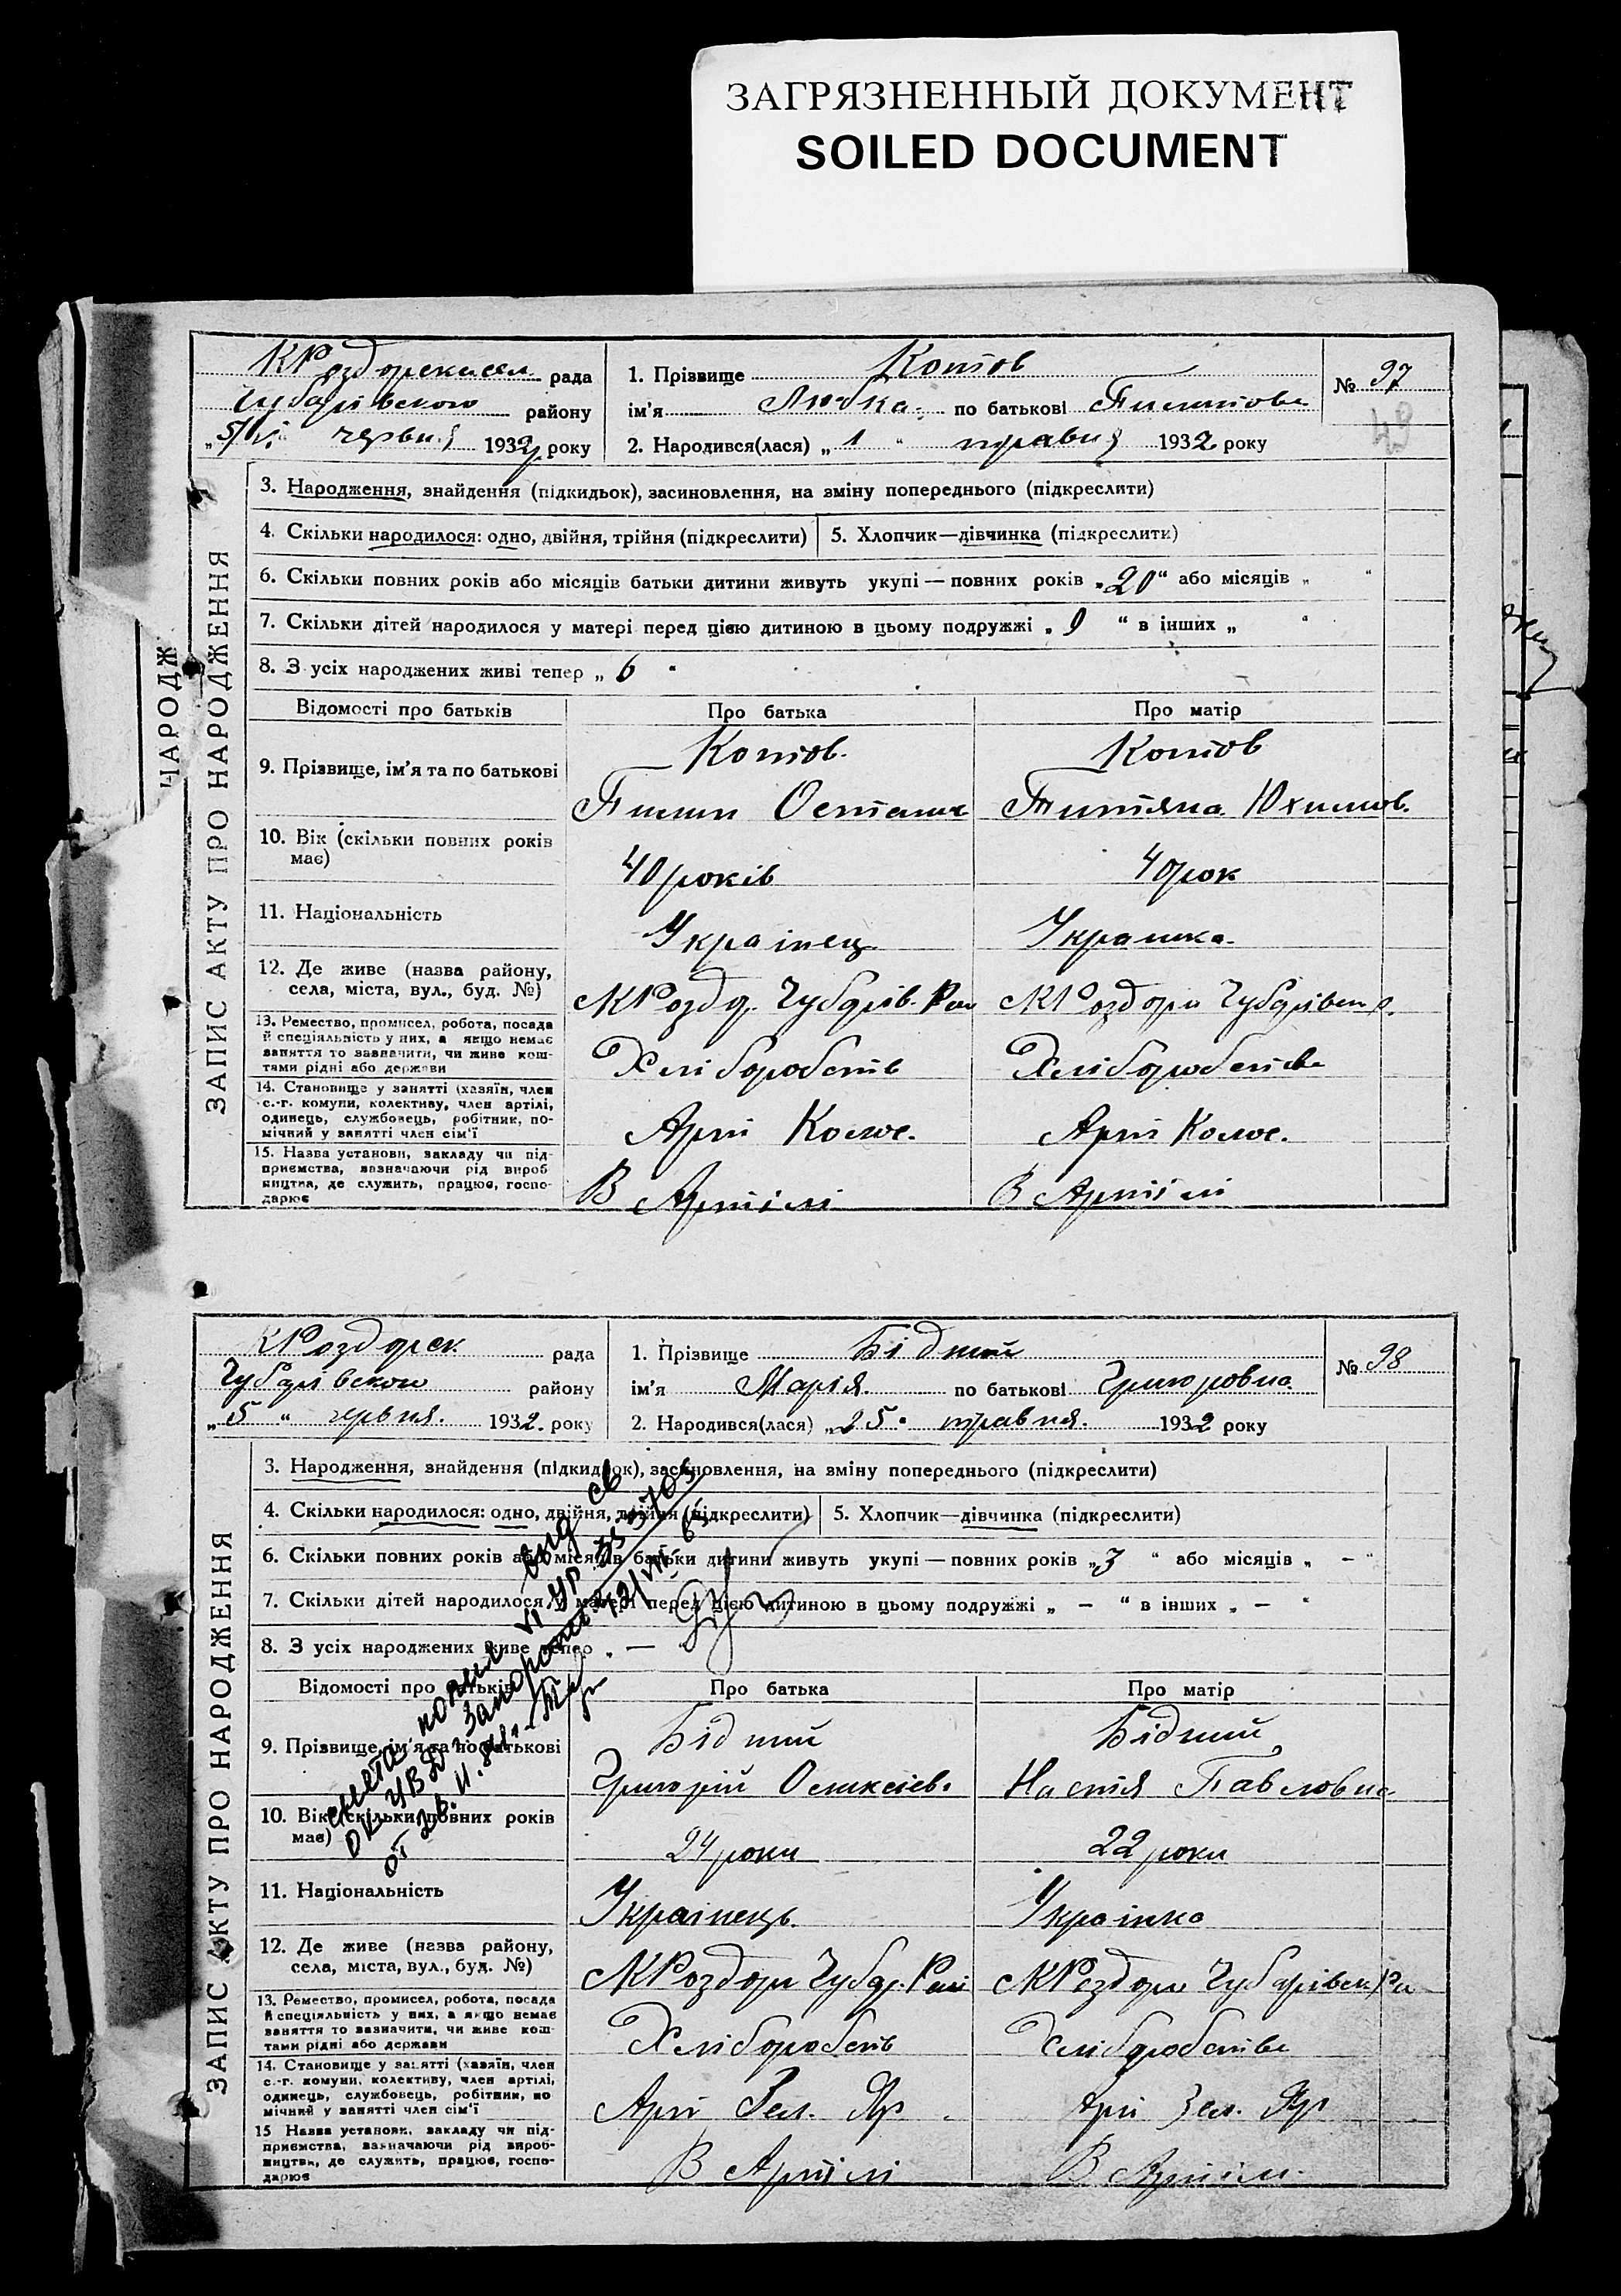 ЗАГРЯЗНЕННЫЙ ДОКУМЕНТ
SOILED DOCUMENT
НАРОДЖ
ЗАПИС АКТУ ПРО НАРОДЖЕННЯ
рада
Чубарівського району
червня 1932 року
1. Прізвище Котов
ім'я Любка по батькові
2. Народився(лася) „1“ травня 1932 року
№ 97
49
3. Народження, знайдення (підкидьок), засиновлення, на зміну попереднього (підкреслити)
4. Скільки народилося: одно, двійня, трійня (підкреслити)
5. Хлопчик—дівчинка (підкреслити)
6. Скільки повних років або місяців батьки дитини живуть укупі — повних років „20“ або місяців „ “
7. Скільки дітей народилося у матері перед цією дитиною в цьому подружжі „9 “ в інших „ “
8. З усіх народжених живі тепер „ 6 “
Відомості про батьків
Про батька
Про матір
9. Прізвище, ім'я та по батькові
Котов
Котов
10. Вік (скільки повних років
має)
40 років
40 рок
11. Національність
Українец
12. Де живе (назва району,
села, міста, вул., буд. №)
КРозд
КРоздори
13. Ремество, промисел, робота, посада
й спеціяльність у них, а якщо немає
заняття то зазначити, чи живе кош-
тами рідні або держави
Хліборобств
Хліборобства
14. Становище у занятті (хазяїн, член
с.-г. комуни, колективу, член артілі,
одинець, службовець, робітник, по-
мічний у занятті член сім'ї
15. Назва установи, закладу чи під-
приємства, зазначаючи рід вироб
ництва, де служить, працює, госпо-
дарює
В Артілі
В Артілі
ЗАПИС АКТУ ПРО НАРОДЖЕННЯ
КРоздорск рада
Чубарівського району
„5“ червня 1932 року
1. Прізвище Бідний
ім'я Марія по батькові Григоровна
2. Народився(лася) „25“ травня 1932 року
№ 98
3. Народження, знайдення (підкидьок), засиновлення, на зміну попереднього (підкреслити)
4. Скільки народилося: одно, двійня, трійня (підкреслити)
5. Хлопчик—дівчинка (підкреслити)
6. Скільки повних років або місяців батьки дитини живуть укупі — повних років „3 “ або місяців „ – “
7. Скільки дітей народилося у матері перед цією дитиною в цьому подружжі „ – “ в інших „ – “
8. З усіх народжених живе тепер „ —
Відомості про батьків
Про батька
Про матір
9. Прізвище, ім'я та по батькові
Бідний
Бідний
Григорій Оликсієв.
Настя Павловна
10. Вік (скільки повних років
має)
24 роки
22 роки
11. Національність
Українець
Українка
12. Де живе (назва району,
села, міста, вул., буд. №)
КРоздори Чубар.
КРоздори Чубарівск
13. Ремество, промисел, робота, посада
й спеціяльність у них, а якщо немає
заняття то зазначити, чи живе кош-
тами рідні або держави
Хліборобств
Хліборобства
14. Становище у занятті (хазяїн, член
с.-г. комуни, колективу, член артілі,
одинець, службовець, робітник, по
мічний у занятті член сім'ї
Арт Зел. Яр
Арт Зел. Яр
15 Назва установи, закладу чи під-
приємства, зазначаючи рід вироб-
ництва, де служить, працює, госпо-
дарює
В Артілі
В Артілі